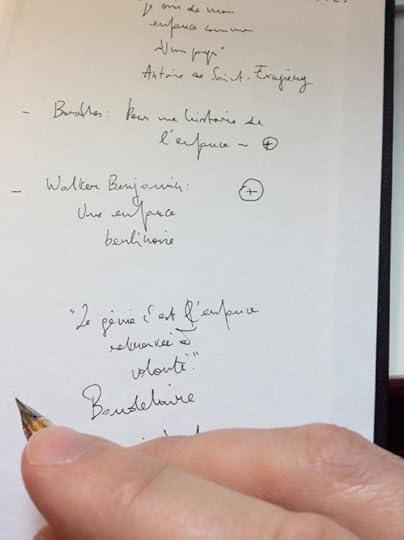 "Je suis de mon
enfance comme
d'un pays"
Antoine de Saint-Exupéry
- : Pour une histoire de
l'enfance - +
- Walter Benjamin: +
Une enfance
berlinoise
"Le génie c'est l'enfance
retrouvée à
volonté."
Baudelaire